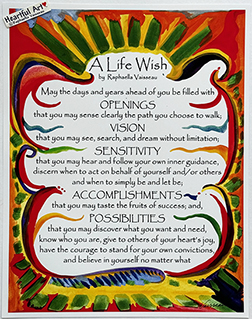 Heartful Art
A Life Wish
by Raphaella Vaisseau
May the days and years ahead of you be filled with
OPENINGS
that you may sense clearly the path you choose to walk;
VISION
that you may see, search, and dream without limitation;
SENSITIVITY
that you may hear and follow your own inner guidance,
discern when to act on behalf of yourself and/or others
and when to simply be and let be;
ACCOMPLISHMENTS
that you may taste the fruits of success; and,
POSSIBILITIES
that you may discover what you want and need,
know who you are, give to others of your heart's joy,
have the courage to stand for your own convictions,
and believe in yourself no matter what